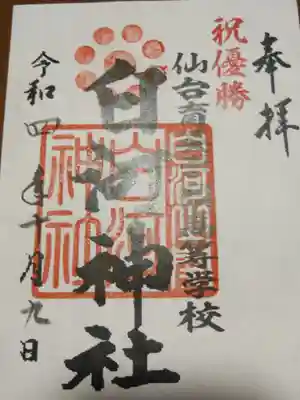 奉拝
祝優勝
仙台育英学園高等学校
白河神社
白河
神社
令和四年十月九日